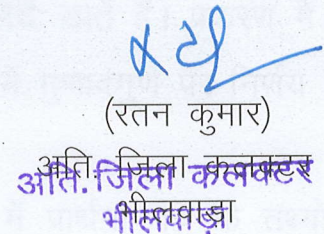 (रतन कुमार)
अति. जिला कलक्टर
अति. जिला कलेक्टर
भीलवाड़ा
भीलवाड़ा